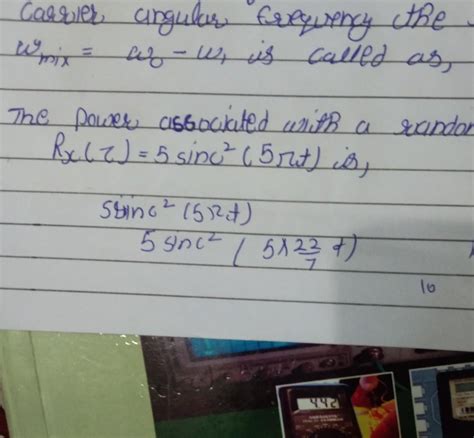 Carrier angular frequency the
ωmix = ω2 - ω1 is called as,
The power associated with a random
Rx(τ) = 5 sinc² (5πt) is,
5sinc² (5πt)
5 sinc² ( 5×22/7 t)
10
442